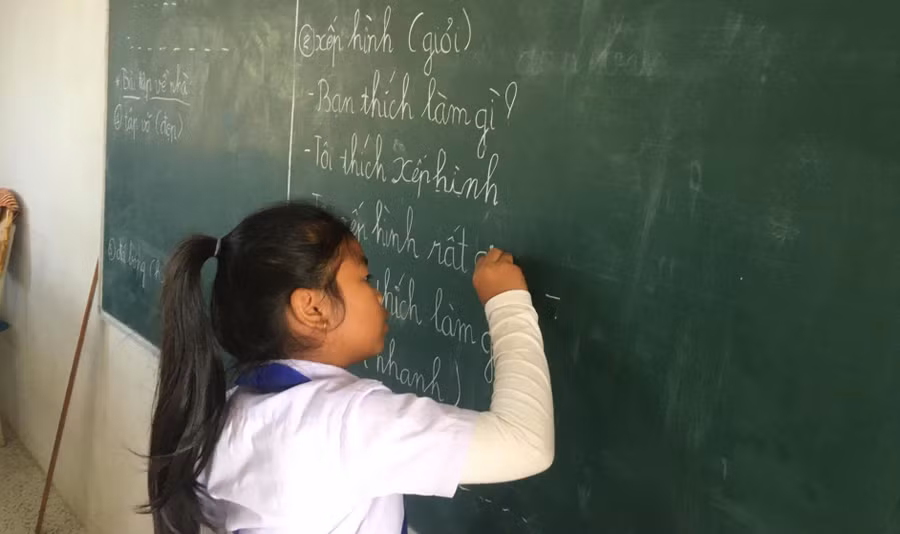 * Bài tập về nhà
tập võ (đẹp)
② xếp hình (giỏi)
- Bạn thích làm gì?
- Tôi thích xếp hình
hình rất
thích làm g
(nhanh)